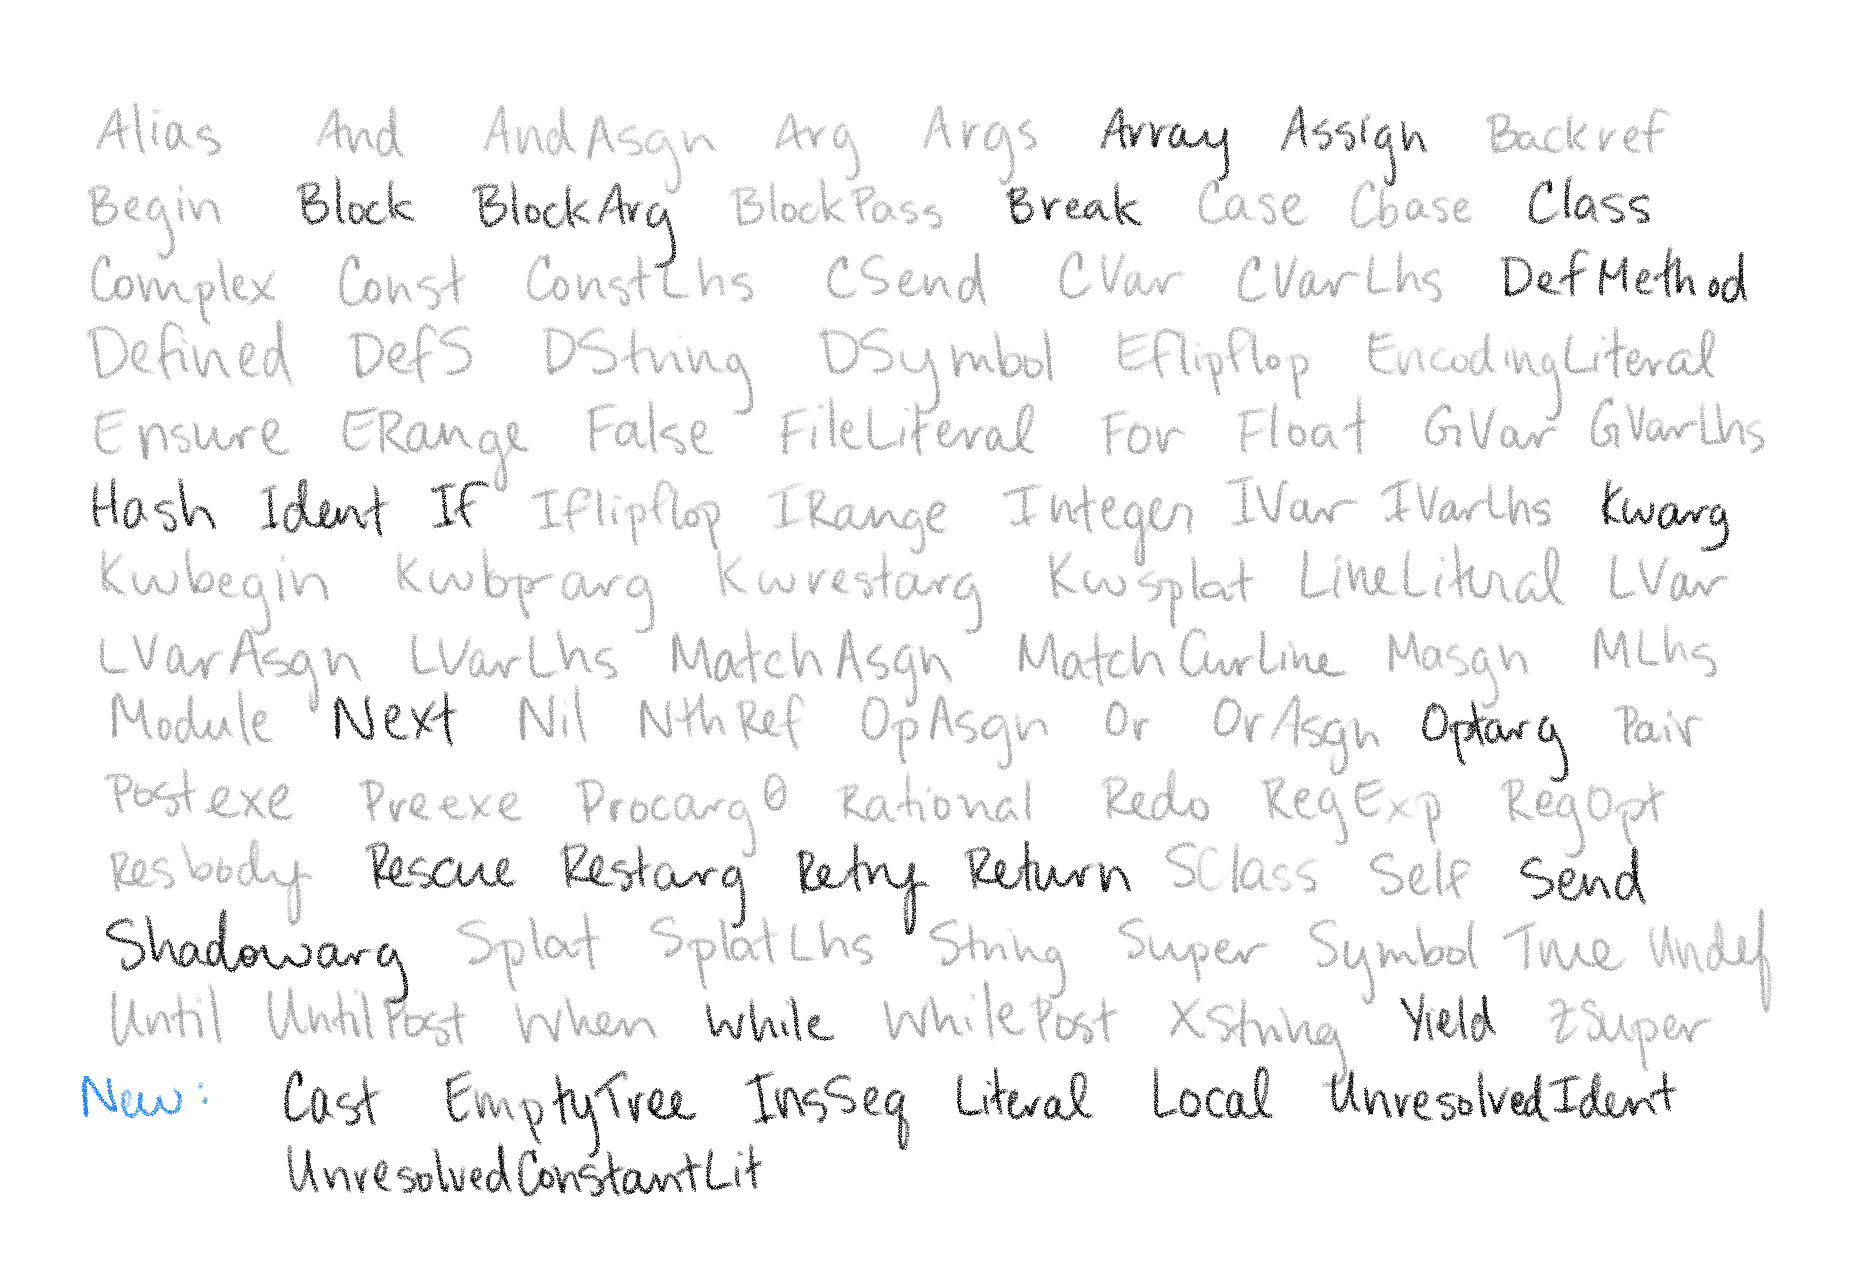 Alias And AndAsgn Arg Args Array Assign Backref
Begin Block BlockArg BlockPass Break Case Cbase Class
Complex Const ConstLhs CSend CVar CVarLhs DefMethod
Defined DefS DString DSymbol Eflipflop EncodingLiteral
Ensure ERange False FileLiteral For Float GVar GVarLhs
Hash Ident If Iflipflop IRange Integer IVar IVarLhs Kwarg
Kwbegin Kwbprarg Kwrestarg Kwsplat LineLiteral LVar
LVarAsgn LVarLhs MatchAsgn MatchCurLine Masgn MLhs
Module Next Nil NthRef OpAsgn Or OrAsgn Optarg Pair
Postexe Preexe Procarg0 Rational Redo RegExp RegOpt
Resbody Rescue Restarg Retry Return SClass Self Send
Shadowarg Splat SplatLhs String Super Symbol True Undef
Until UntilPost When While WhilePost XString Yield ZSuper
New: Cast EmptyTree InsSeq Literal Local UnresolvedIdent
UnresolvedConstantLit